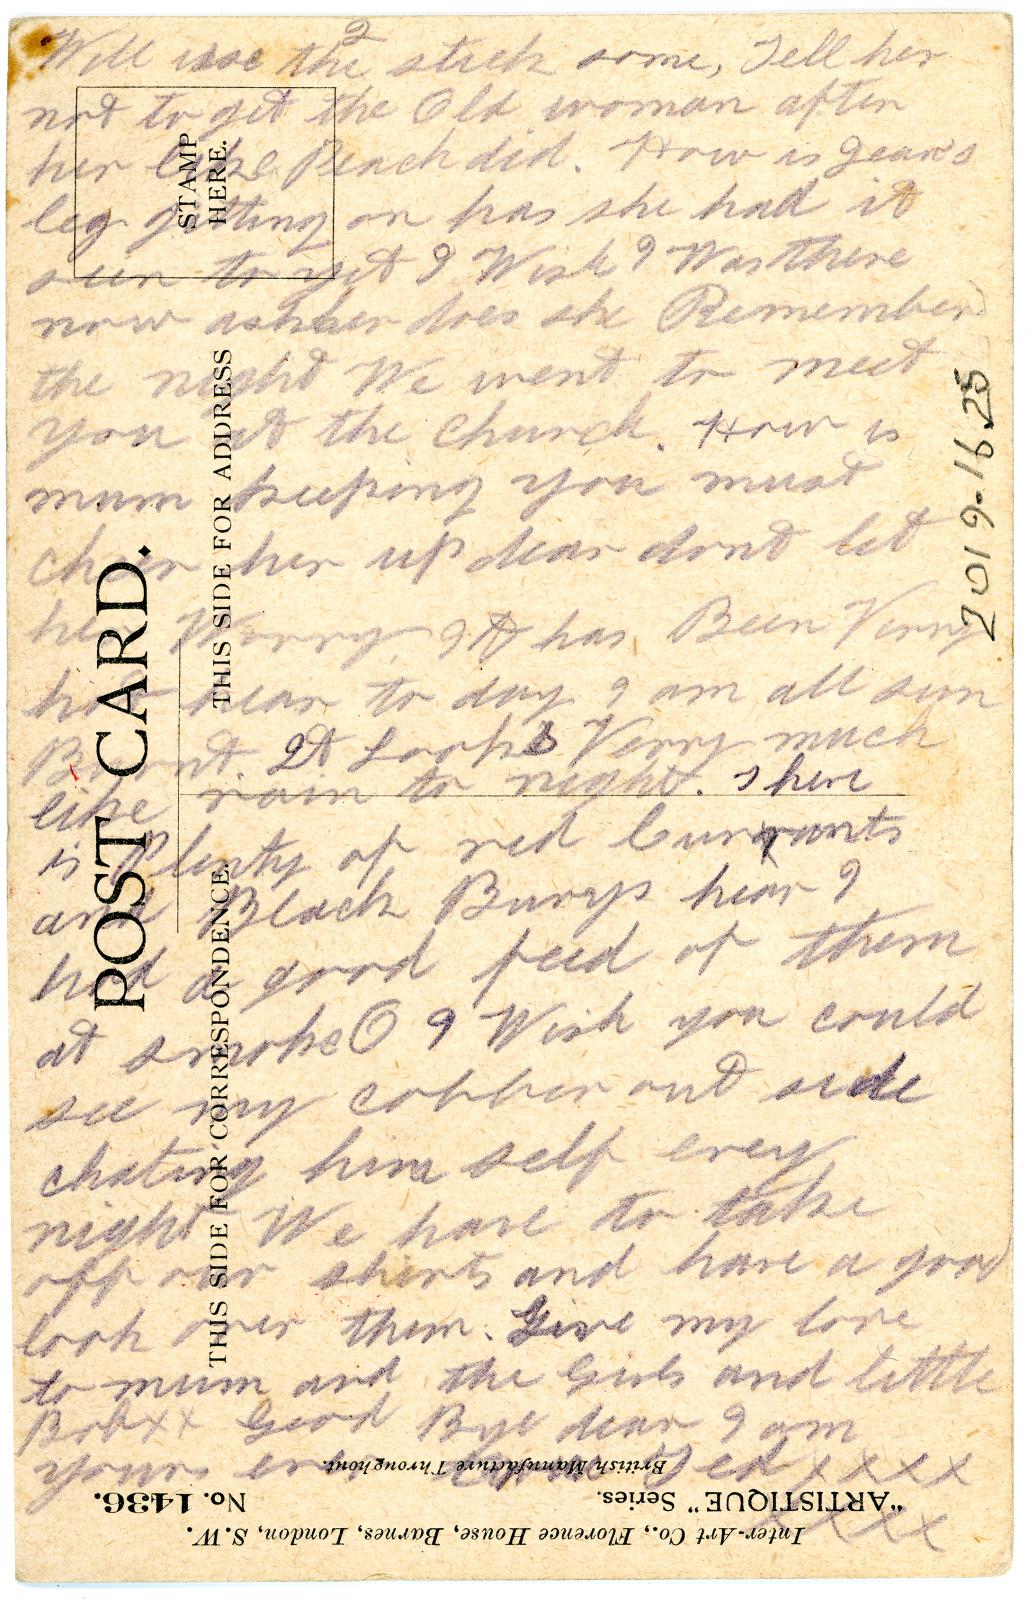 2
Will use the stick some, Tell her
not to get the Old woman after
her like Peach did. How is Jean's
leg getting on has she had it
seen to yet I Wish I Was there
now ask her does she Remember
the night We went to meet
you at the Church. How is
mum keeping you must
cheer her up dear dont let
her Worry It has Been Verry
hot hear to day I am all sun
Burnt. It Looks Verry much
like rain to night. There
is Plenty of red Currants
and Black Burrys hear I
had a good feed of them
at smokeO I Wish you could
see my cobber out side
chating him self every
night We have to take
off our shirts and have a good
look over them. Give my love
to mum and the Girls and little
Bob xx Good Bye dear I am
yours ever Ted xxxx
xxxx
POST CARD.
STAMP
HERE.
THIS SIDE FOR ADDRESS
THIS SIDE FOR CORRESPONDENCE.
2019.16.25
British Manufacture Throughout
No. 1436.
"ARTISTIQUE" Series.
Inter-Art Co., Florence House, Barnes, London, S.W.